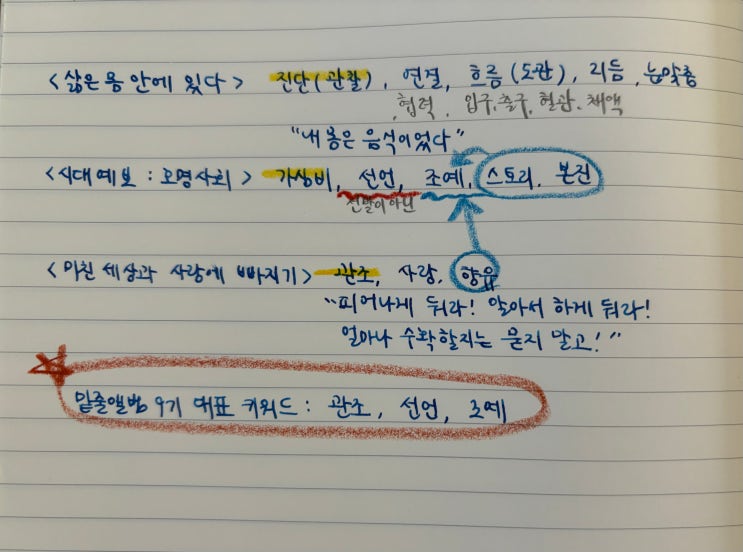 <삶은 몸 안에 있다> 진단(관찰), 연결, 흐름(도관), 리듬, 눈맞춤
협력, 입구, 출구, 혈관, 체액
"내 몸은 음식이었다"
<시대예보 : 호명사회> 가상비, 선언, 조예, 스토리, 본진
전말이 아닌
<미친 세상과 사랑에 빠지기> 관조, 사랑, 향유
"피어나게 둬라! 알아서 하게 둬라!
얼마나 수확할지는 묻지 말고!"
밑줄앨범 9기 대표 키워드 : 관조, 선언, 조예